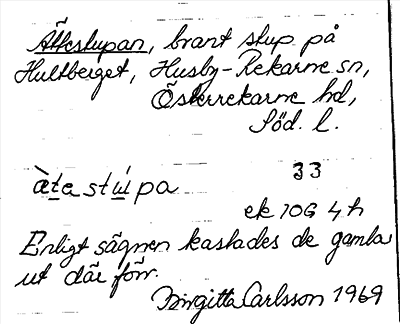 Ätteslupan, brant stup på
Hultberget, Husby-Rekarne sn,
Österrekarne hd,
Söd. l.
àt̲a stu̲̍pa 33
ek 10G 4h
Enligt sägnen kastades de gamla
ut där förr.
Birgitta Carlsson 1969